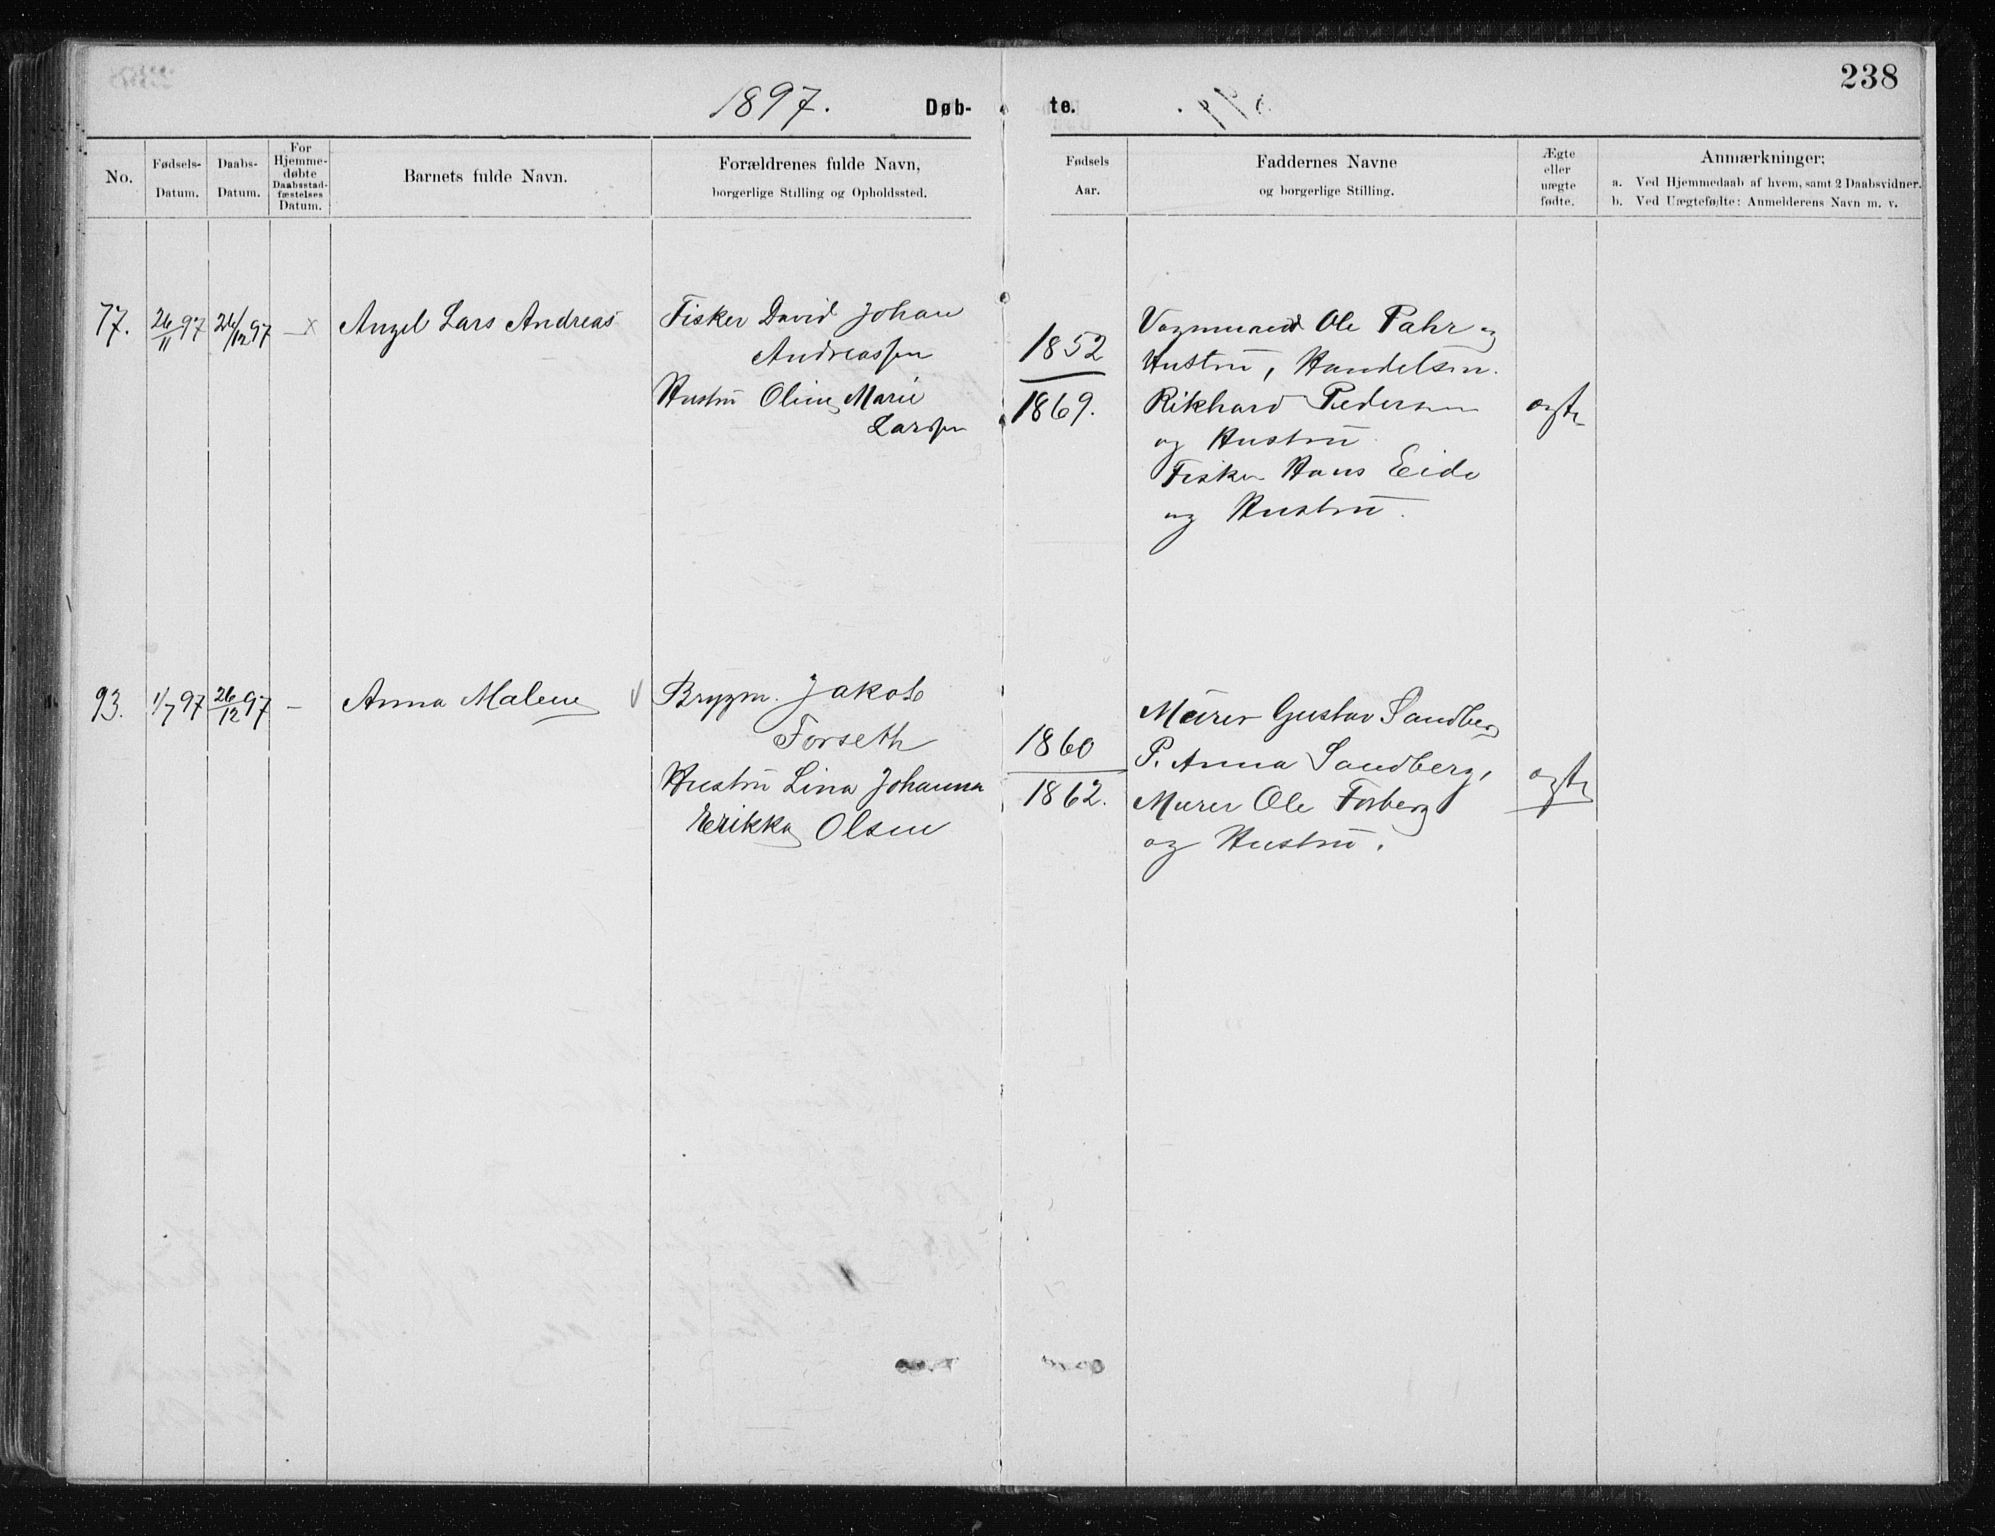 238
1897. Døb- te.
No.
Fødsels-Datum.
Daabs-Datum.
For Hjemmedøbte Daabsstadfæstelses Datum.
Barnets fulde Navn.
Forældrenes fulde Navn,
borgerlige Stilling og Opholdssted.
Fødsels Aar.
Faddernes Navne
og borgerlige Stilling.
Ægte eller uægte fødte.
Anmærkninger:
a. Ved Hjemmedaab af hvem, samt 2 Daabsvidner.
b. Ved Uægtefødte: Anmelderens Navn m. v.
77. 26/11 97 26/12 97 — x Angel Lars Andreas
Fisker David Johan
Andreassen
Hustru Oline Marie
Larssen
1852
1869.
Vognmand Ole Pahr og
Hustru, Handelsm.
Rikhard Pedersen
og Hustru
Fisker Hans Eide
og Hustru.
ægte
93. 1/7 97 26/12 97 — Anna Malene
Brygm. Jakob
Forseth
Hustru Lina Johanna
Erikka Olsen
1860
1862.
Murer Gustav Sandberg
P. Anna Sandberg,
Murer Ole Forberg
og Hustru.
ægte